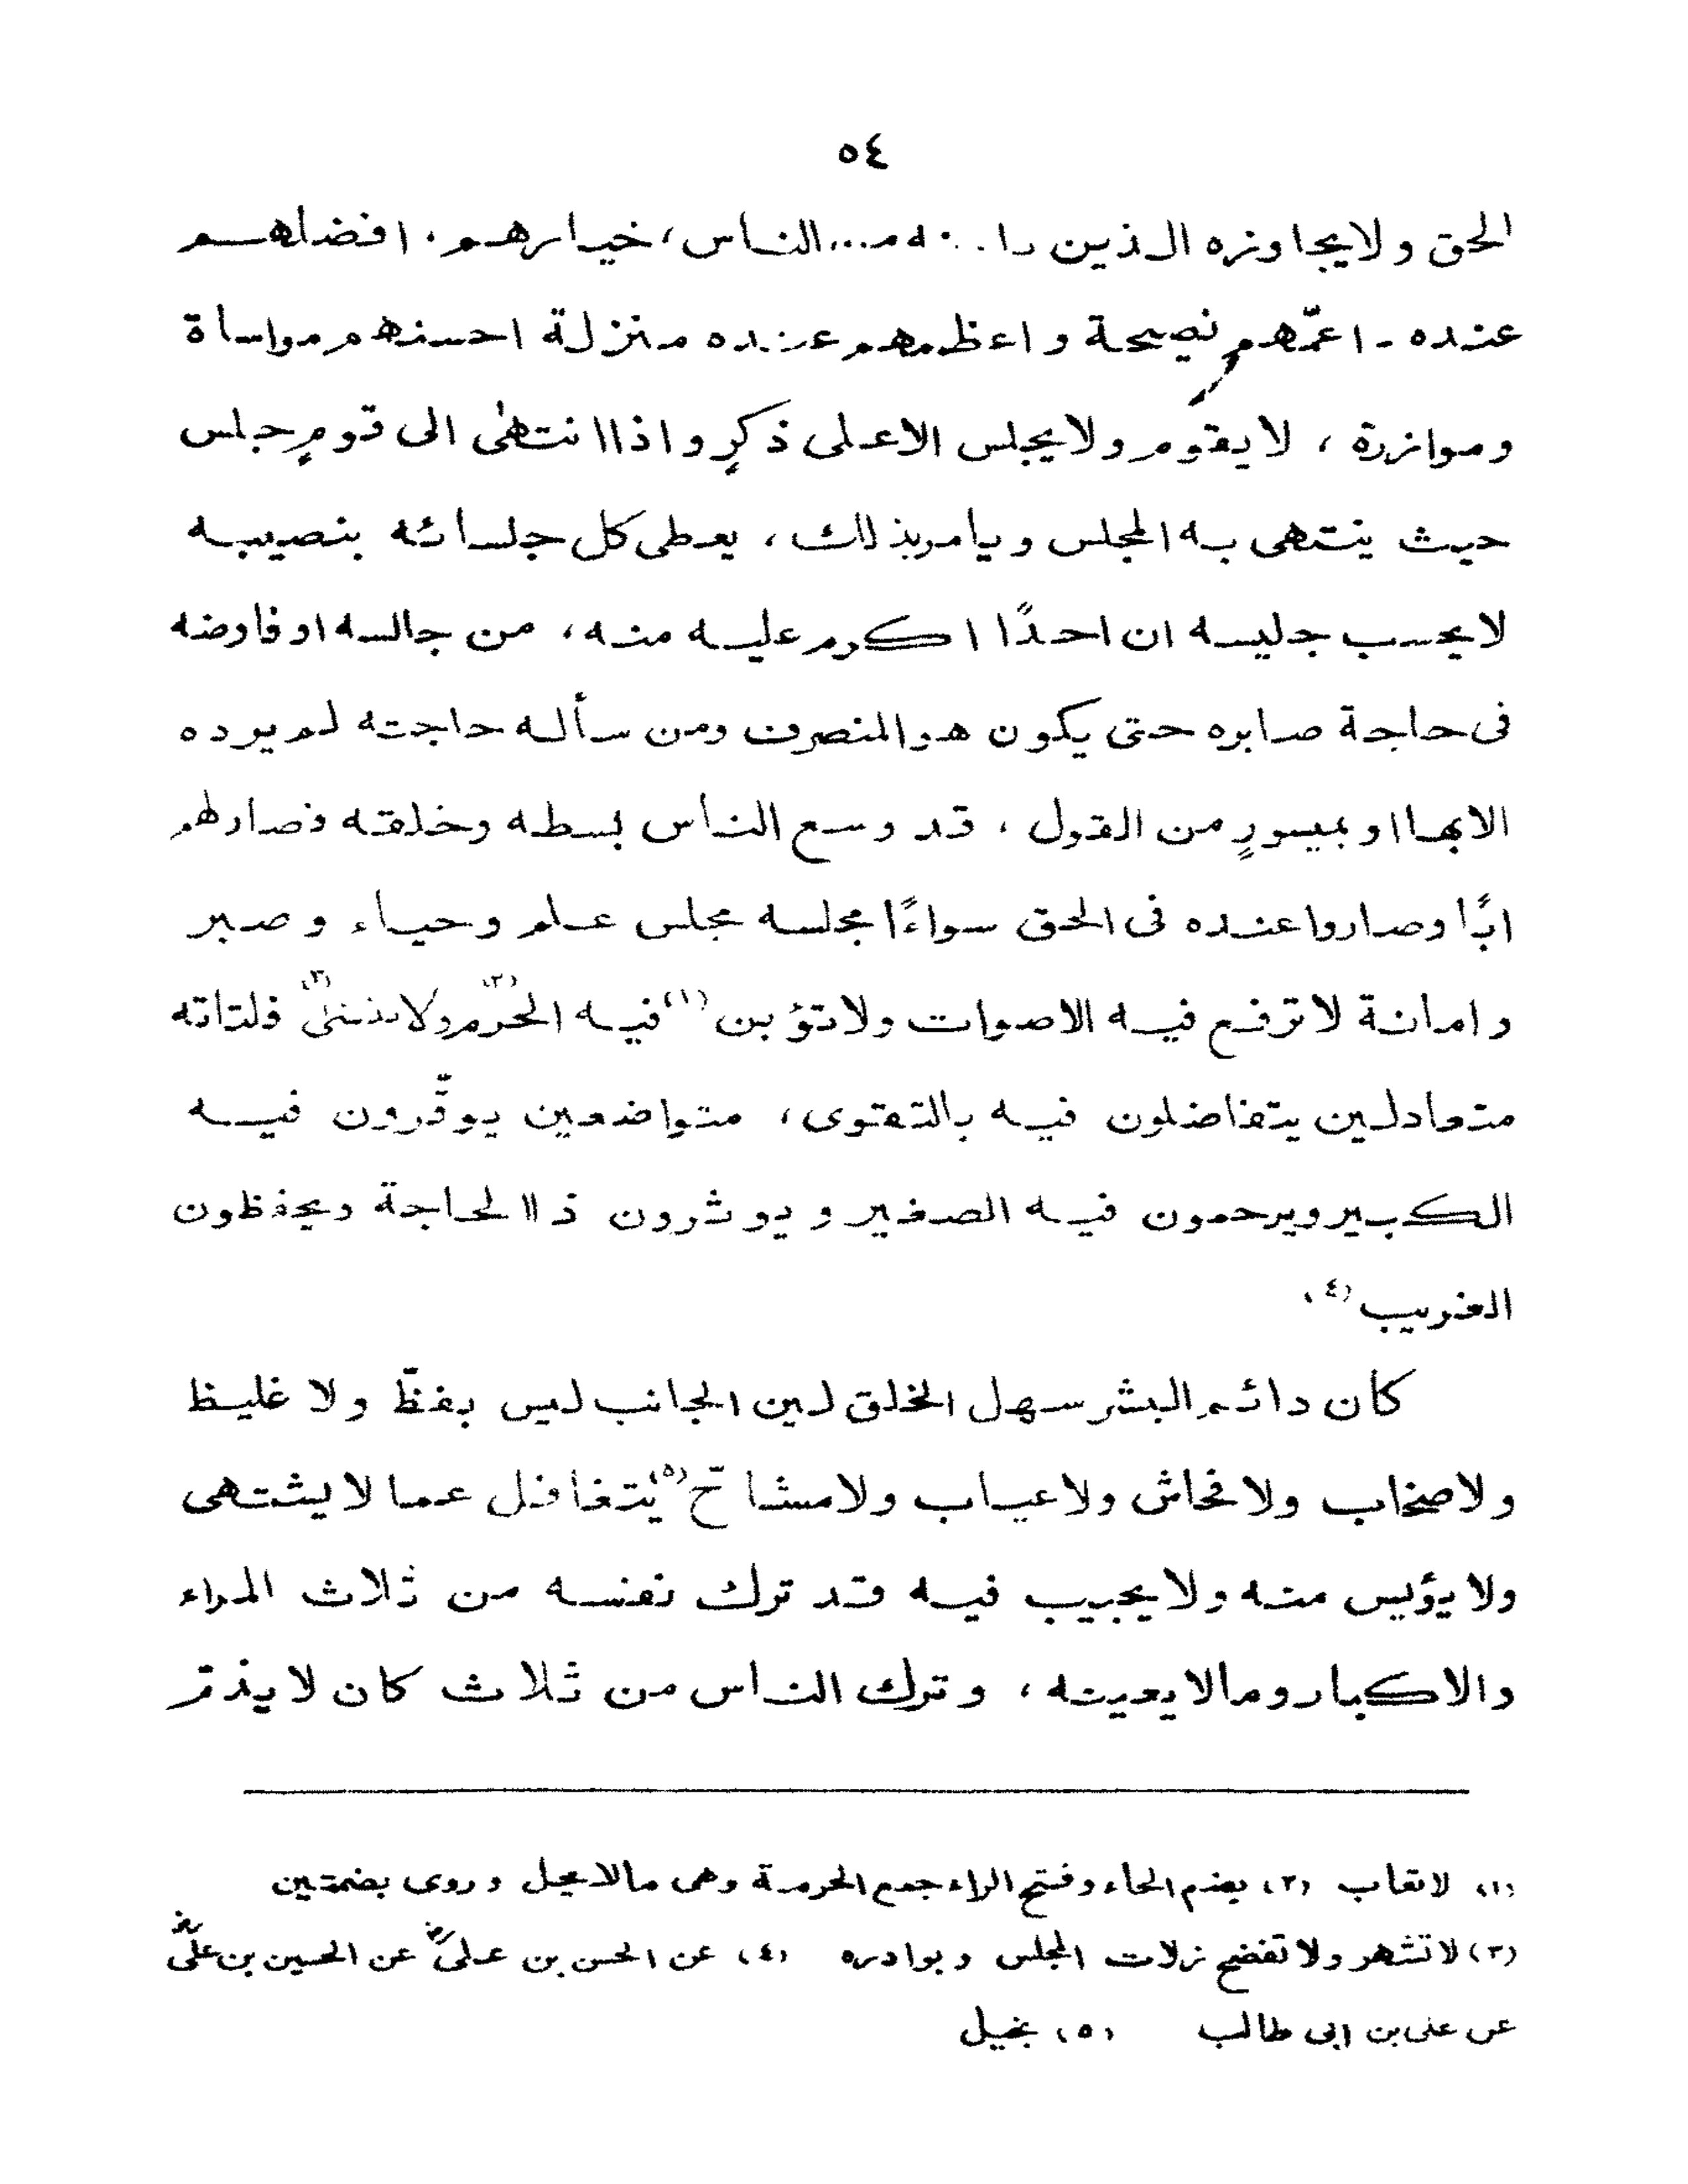 ٥٤
الحق ولا يجاوزه الذين الناس، خيارهم، افضلهم
عنده - اعمّهم نصيحة واعظمهم عنده منزلة احسنهم مواساة
وموازرة، لا يقوم ولا يجلس الا على ذكرٍ واذا انتهىٰ الى قومٍ جلس
حيث ينتهى به المجلس ويامر بذلك، يعطى كل جلسائه بنصيبه
لا يحسب جليسه ان احدًا اكرم عليه منه، من جالسه او فاوضه
فى حاجة صابره حتى يكون هو المنصرف ومن سأله حاجته لم يرده
الا بها او بميسورٍ من القول، قد وسع الناس بسطه وخلقه فصار لهم
ابًا وصاروا عنده فى الحق سواءًا مجلسه مجلس علم وحياء وصبر
وامانة لا ترفع فيه الاصوات ولا تؤبن (١) فيه الحرّم (٢) ولا تنثىٰ (٣) فلتاته
متعادلين يتفاضلون فيه بالتقوى، متواضعين يوقّرون فيه
الكبير ويرحمون فيه الصغير ويوثرون ذا الحاجة ويحفظون
الغريب (٤)
كان دائم البشر سهل الخلق لين الجانب ليس بفظّ ولا غليظ
ولا صخاب ولا فحاش ولا عياب ولا مشاحّ (٥) يتغافل عما لا يشتهى
ولا يؤيس منه ولا يجيب فيه قد ترك نفسه من ثلاث المراء
والاكبار وما لا يعينه، وترك الناس من ثلاث كان لا يذمّ
(١) لا تعاب (٢) بضم الحاء وفتح الراء جمع الحرمة وهى ما لا يحل وروى بضمتين
(٣) لا تشهر ولا تفضح زلات المجلس وبوادره (٤) عن الحسن بن علىؓ عن الحسين بن علىؓ
عن على بن ابى طالب (٥) بخيل